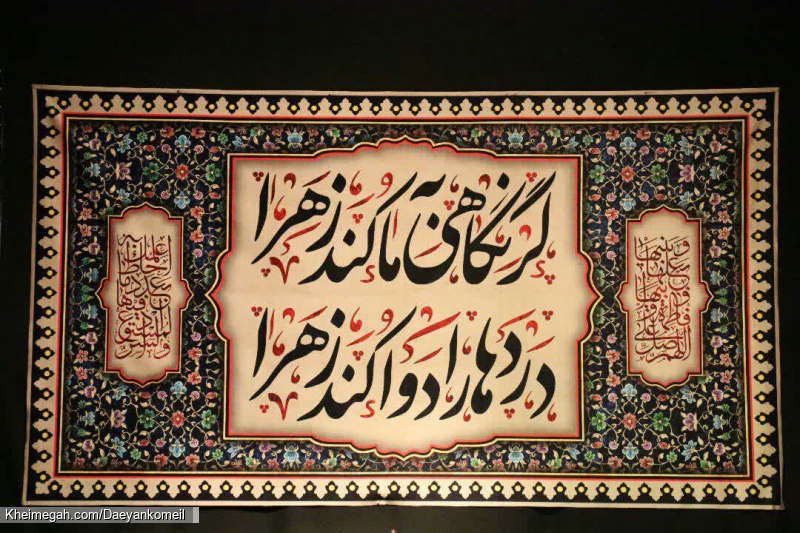 گر نگاهی به ما کند زهرا
دردها را دوا کند زهرا
اللهم صل علی فاطمة و ابیها و بعلها و بنیها
و السر المستودع فیها بعدد ما احاط به علمک
Kheimegah.com/Daeyankomeil